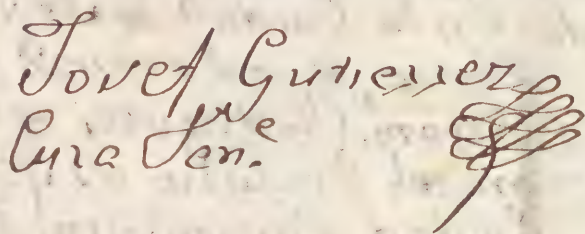 Josef Gutierrez
Cura Ten.te